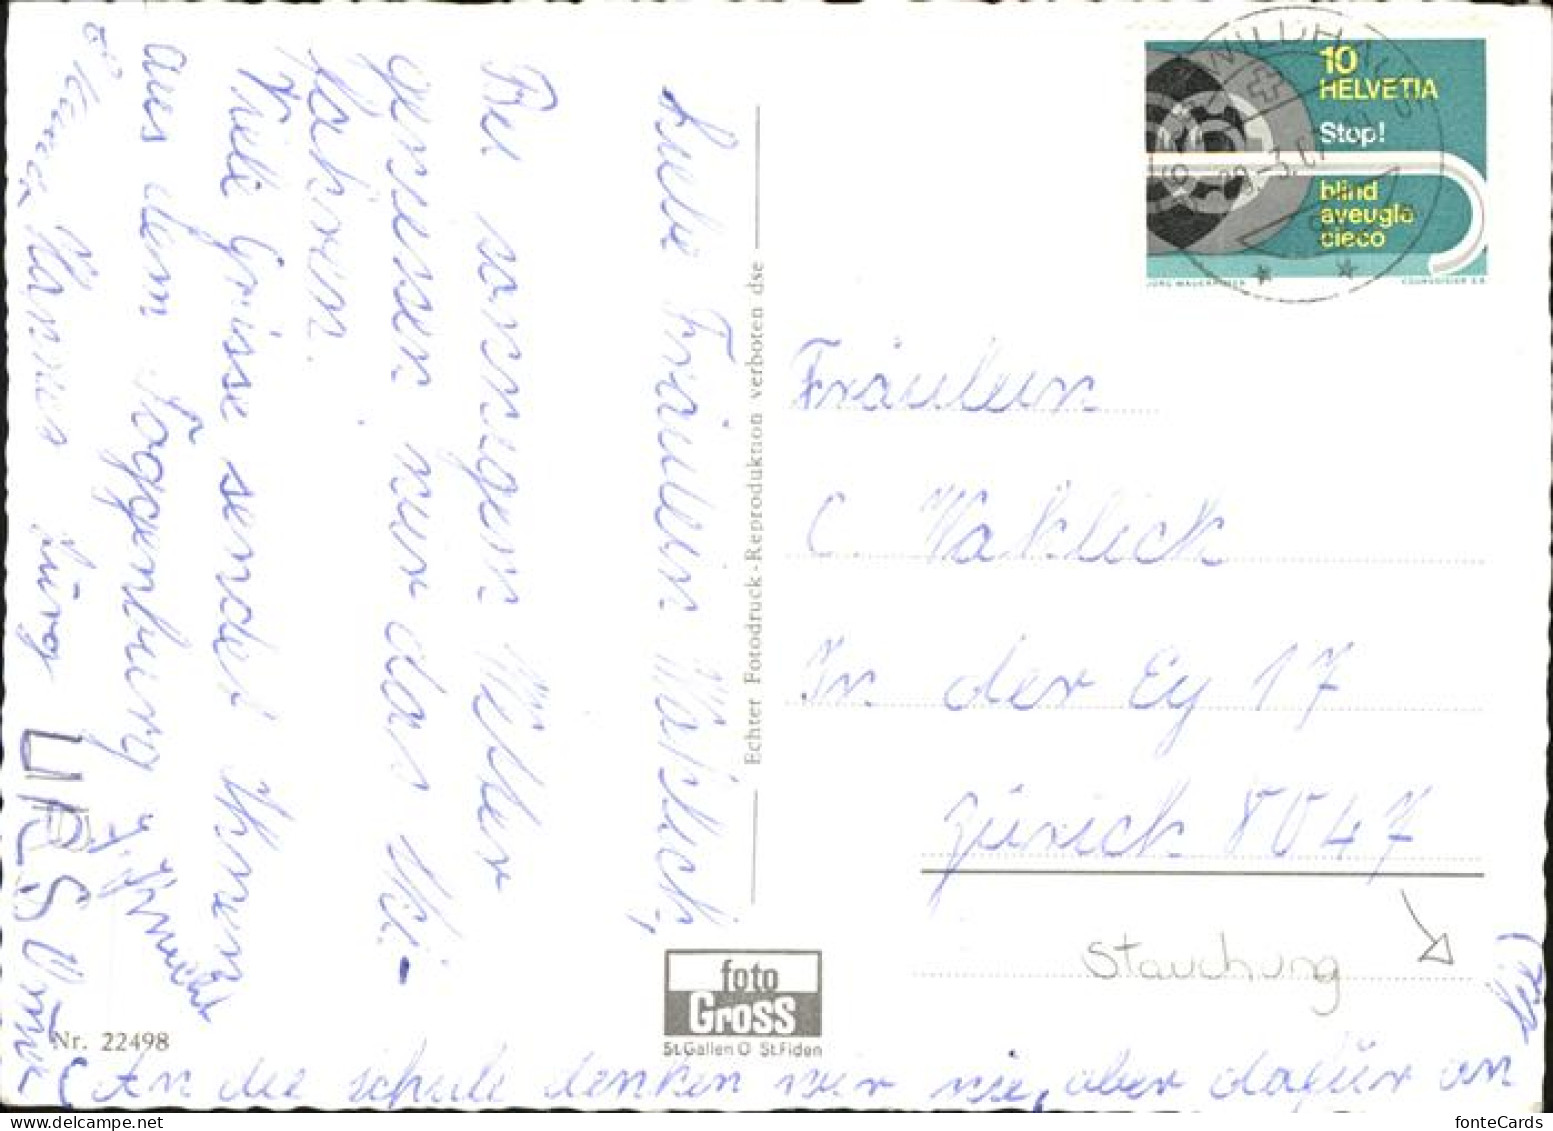 Liebe Fräulein Waklich,
Bei sonnigem Wetter
genissen wir das Ski-
fahren.
Viele Grüsse sendet Ihnen
aus dem Toggenburg
Hannes Jürg URS
(An die schule denken wir nie, aber dafür an
Echter Fotodruck-Reproduktion verboten dse
foto
Gross
St.Gallen O St.Fiden
Nr. 22498
10
HELVETIA
Stop!
blind
aveugle
cieco
WILDHAUS
Fräulein
C. Waklich
In der Ey 17
Zürich 8047
Stauchung
fonteCards